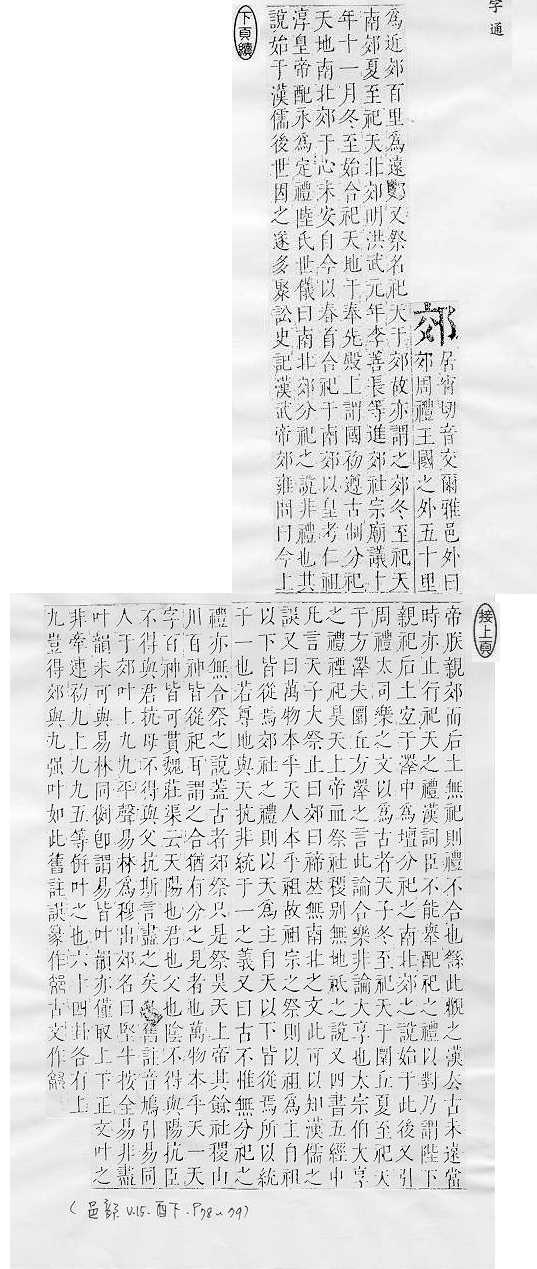 字通
郊
居宵切音交爾雅邑外曰
郊周禮王國之外五十里
為近郊百里為遠郊又祭名祀天于郊故亦謂之郊冬至祀天
南郊夏至祀天北郊明洪武元年李善長等進郊社宗廟議十
年十一月冬至始合祀天地于奉先殿上謂國初遵古制分祀
天地南北郊于心未安自今以春首合祀于南郊以皇考仁祖
淳皇帝配永為定禮陸氏世儀曰南北郊分祀之說非禮也其
說始于漢儒後世因之遂多聚訟史記漢武帝郊雍問曰今上
下頁續
接上頁
帝朕親郊而后土無祀則禮不合也繇此觀之漢去古未遠當
時亦止行祀天之禮漢詞臣不能舉配祀之禮以對乃謂陛下
親祀后土宜于澤中為壇分祀之南北郊之說始于此後又引
周禮大司樂之文以為古者天子冬至祀天于圜丘夏至祀天
于方澤夫圜丘方澤之言此論合樂非論大享也大宗伯大享
之禮禋祀昊天上帝血祭社稷別無地祇之說又四書五經中
凡言天子大祭止曰郊曰禘並無南北之文此可以知漢儒之
誤又曰萬物本乎天人本乎祖故祖宗之祭則以祖為主自祖
以下皆從焉郊社之禮則以天為主自天以下皆從焉所以統
于一也若尊地與天抗非統于一之義又曰古不惟無分祀之
禮亦無合祭之說蓋古者郊祭只是祭昊天上帝其餘社稷山
川百神皆從祀耳謂之合猶有分之見者也萬物本乎天一天
字百神皆可貫魏莊渠云天陽也君也父也陰不得與陽抗臣
不得與君抗母不得與父抗斯言盡之矣舊註音鳩引易同
人于郊叶上九九平聲易林為穆出郊名曰堅牛按全易非盡
叶韻未可與易林同例卽謂易皆叶韻亦僅取上下正文叶之
非牽連初九上九九五等併叶之也六十四卦各有上
九豈得郊與九强叶如此舊註誤篆作古文作
(邑部 V.15. 酉下. P78~79)